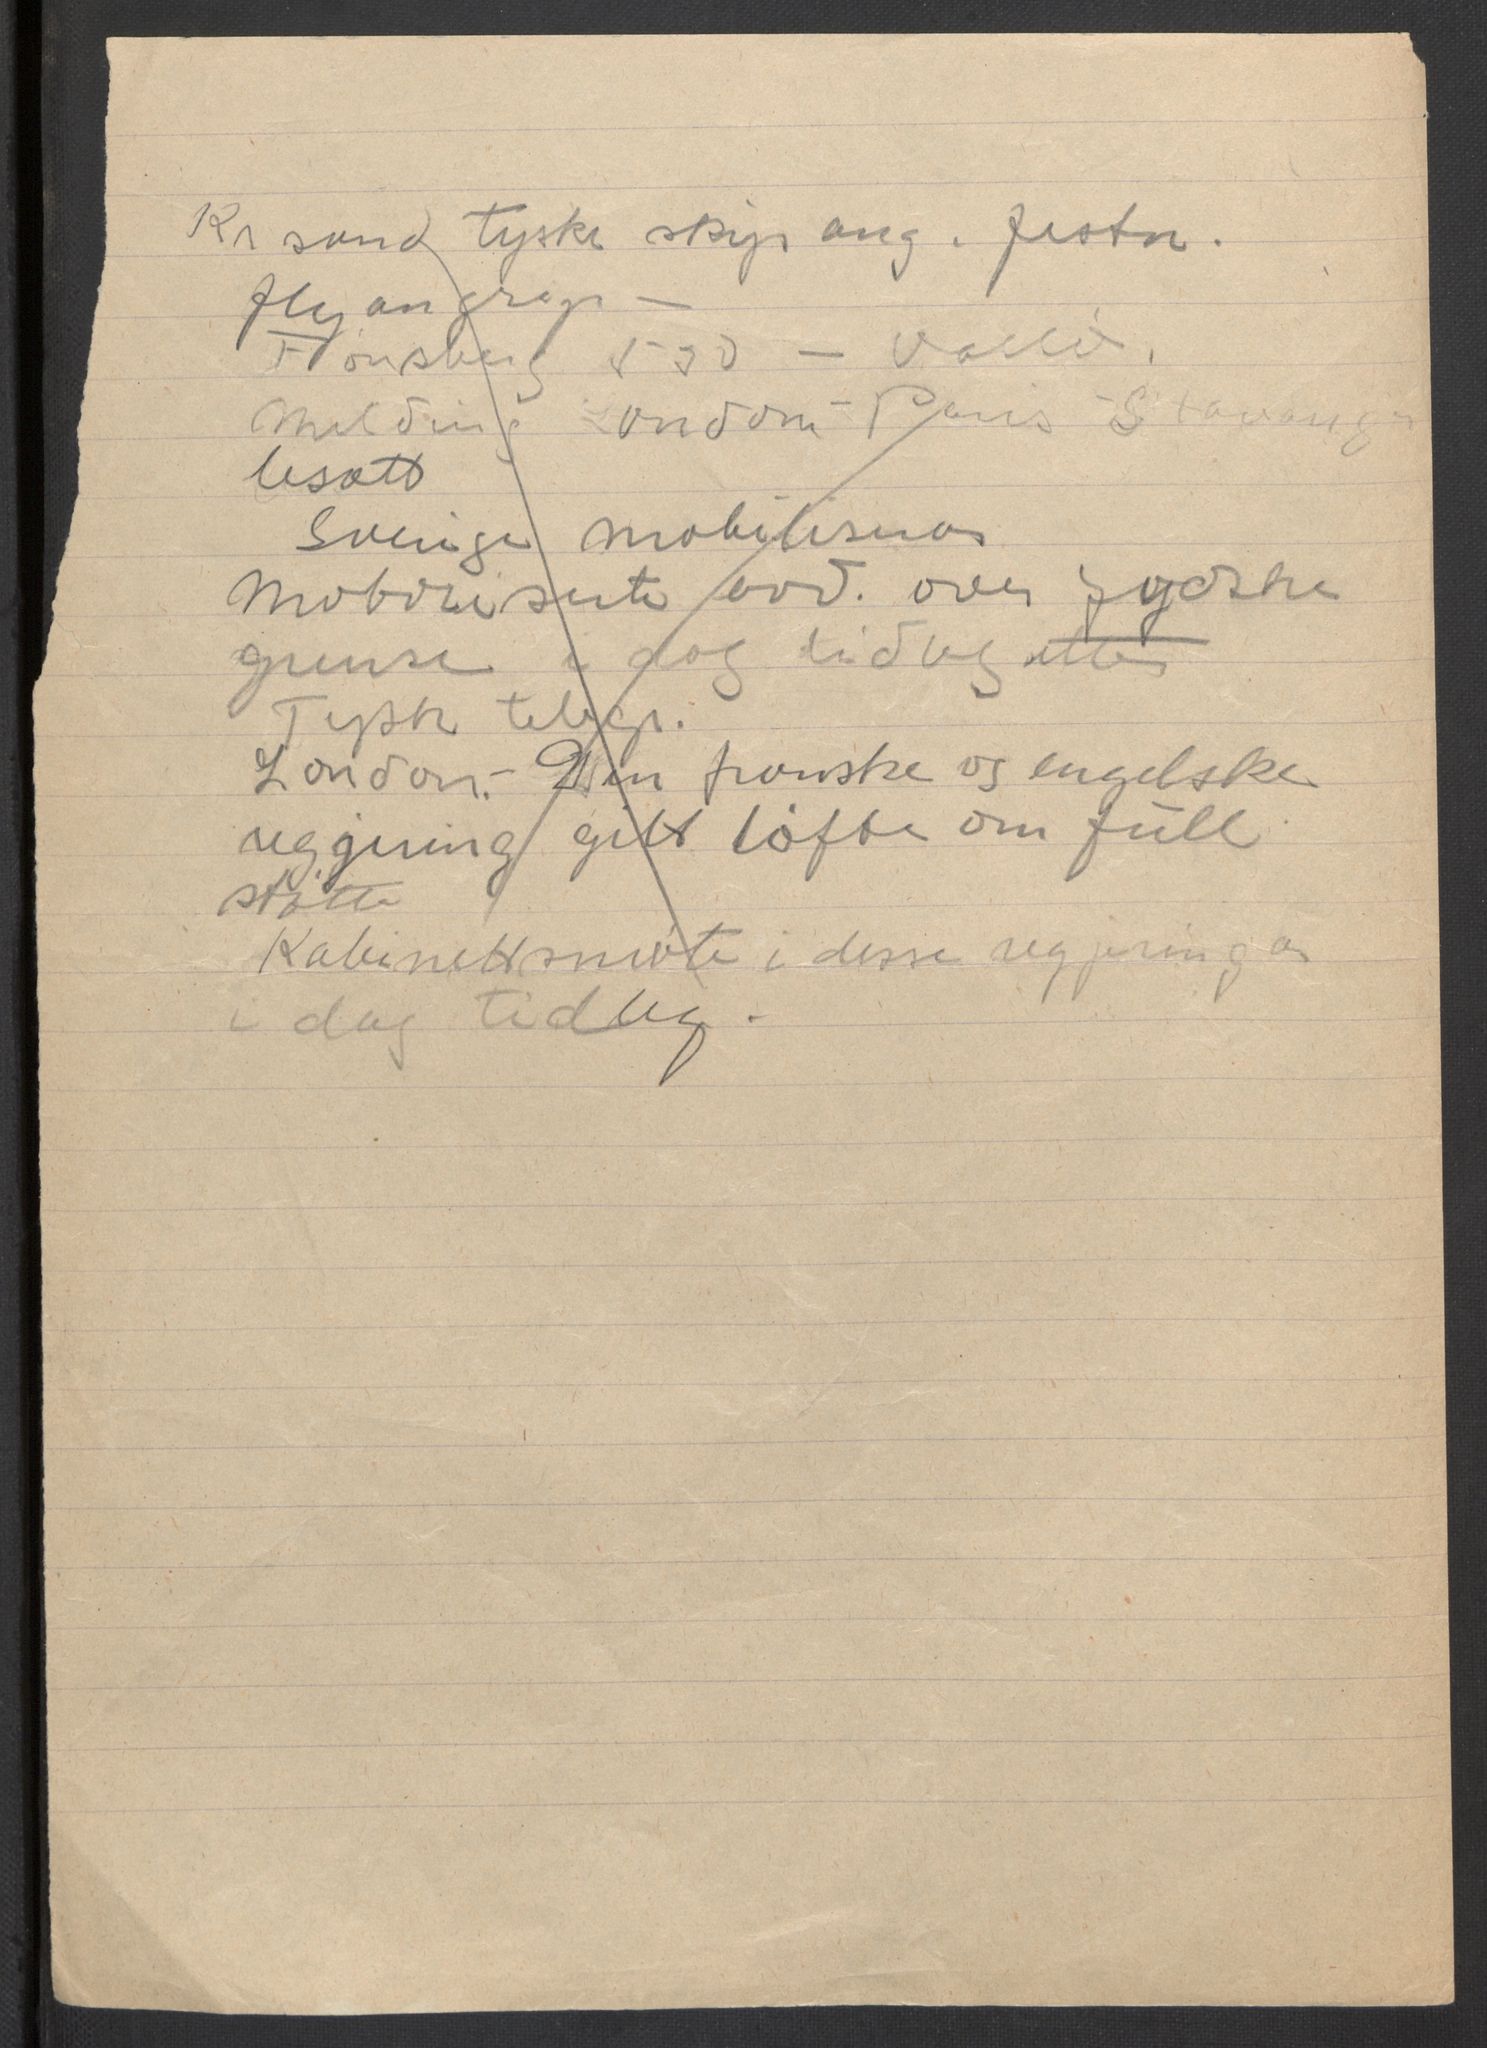 Kr sand tyske skip ang. festn.
flyangrep —
Tönsberg 530 — Vallö.
Melding London – Paris – Stavanger
besatt
Sverige mobiliserar
Motoriserte avd. over jydske
grense i dag tidleg
Tysk telegr.
London. – Den franske og engelske
regjering gitt löfte om full
stötte
Kabinettsmöte i desse regjeringar
i dag tidleg.